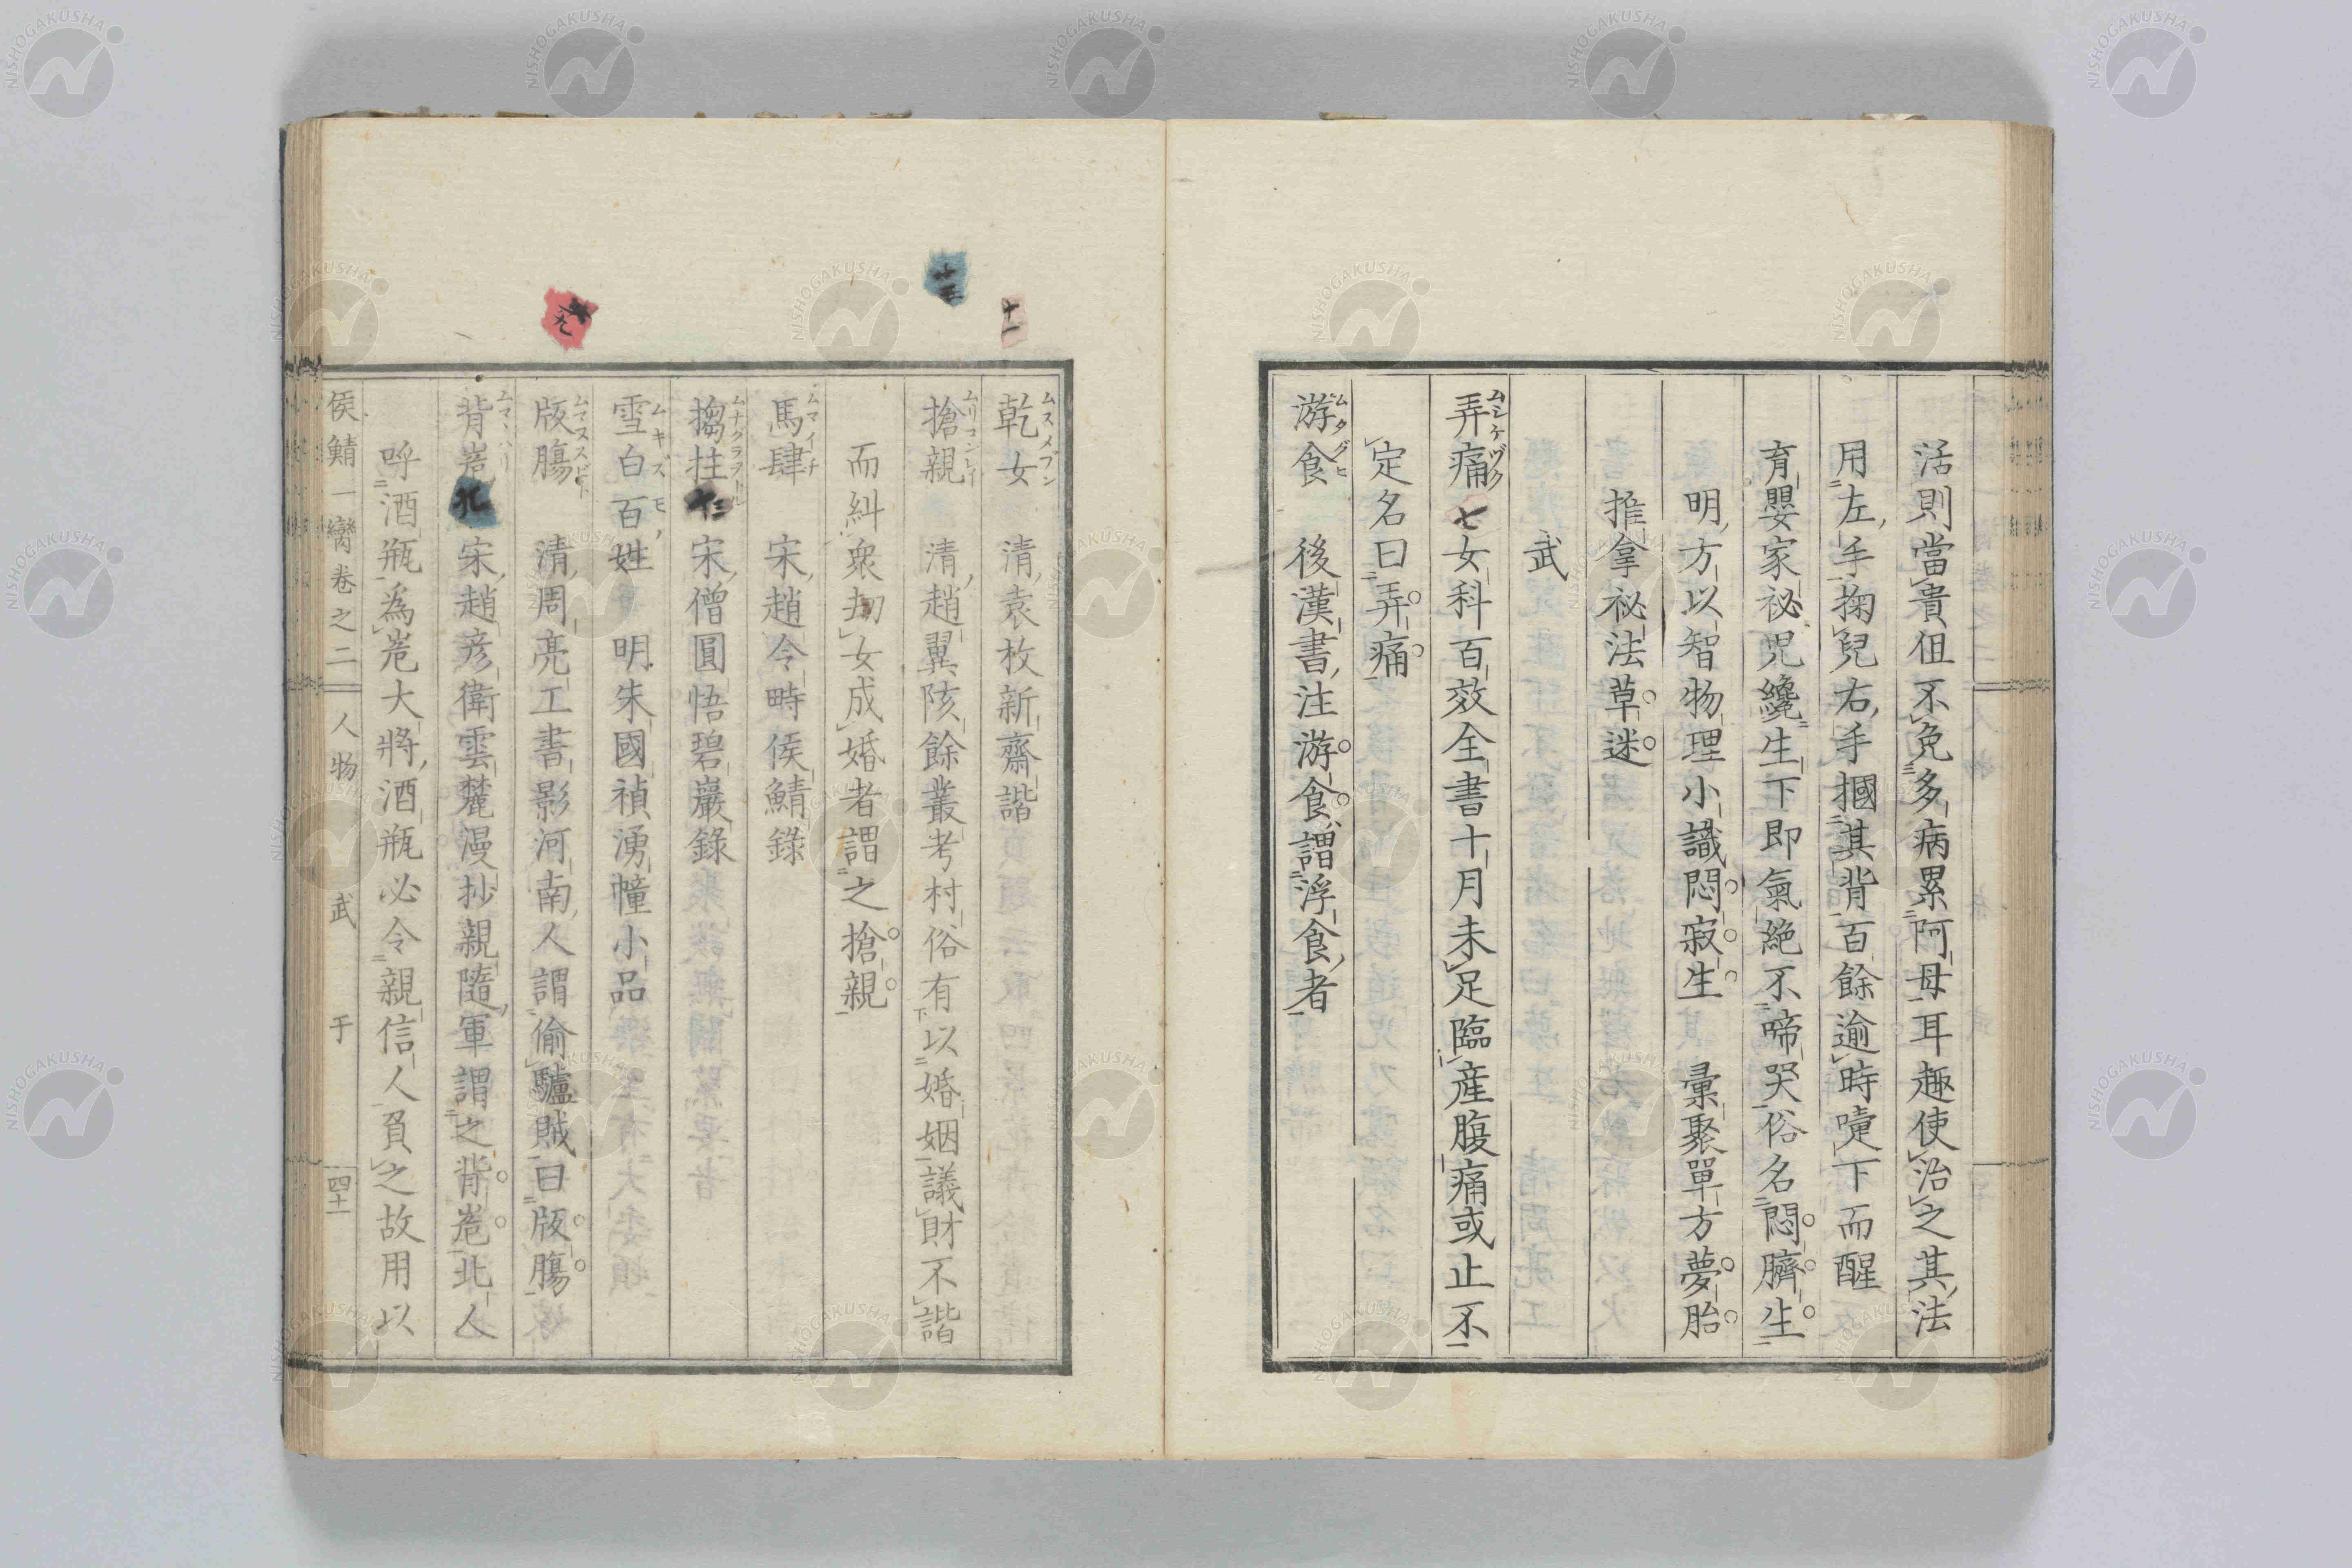 活則當貴伹不免多病累阿母耳趣使治之其法
用左手掬兒右手摑其背百餘逾時嚏下而醒
育嬰家祕児纔生下即氣絶不啼哭俗名悶臍生
明方以智物理小識悶寂生　彙聚單方夢胎
推拿祕法草迷
武
弄痛ムシケヅク 七 女科百效全書十月未足臨産腹痛或止不
定名曰弄痛
游食ムタグヒ 後漢書注游食謂浮食者
十一
十三
乾女ムスメブン 清袁枚新齋諧
搶親ムリコンレイ 清趙翼陔餘叢考村俗有以婚姻議財不諧
而糾衆劫女成婚者謂之搶親
馬肆ムマイチ 宋趙令畤侯鯖錄
搊拄ムナグラヲトル 十三 宋僧圓悟碧巖錄
雪白百姓 明朱國禎湧幢小品
版膓ムマヌスビト 清周亮工書影河南人謂偷驢賊曰版膓
背嵬 宋趙彦衛雲麓漫抄親隨軍謂之背嵬北人
呼酒瓶為嵬大將酒瓶必令親信人負之故用以
侯鯖一臠卷之二 人物 武 于 四十一
NISHOGAKUSHA